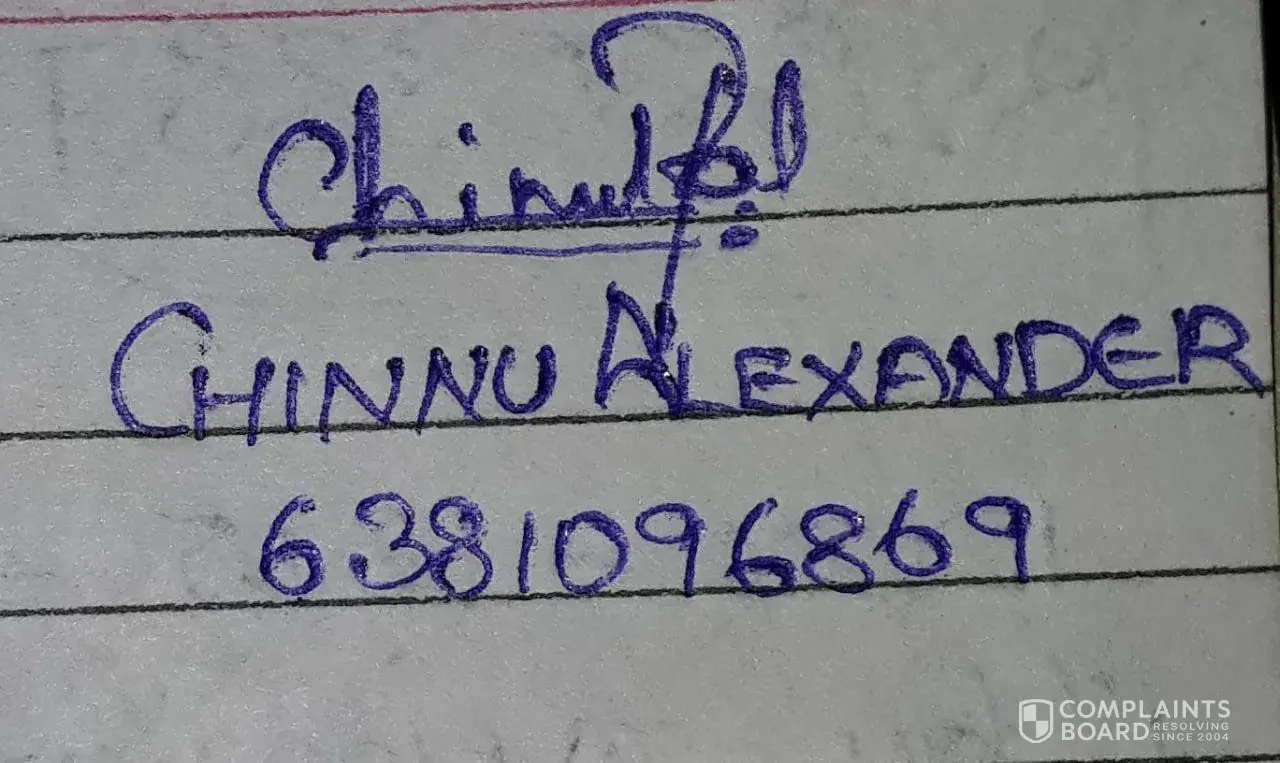 CHINNU ALEXANDER
6381096869
COMPLAINTS
BOARD RESOLVING
SINCE 2004